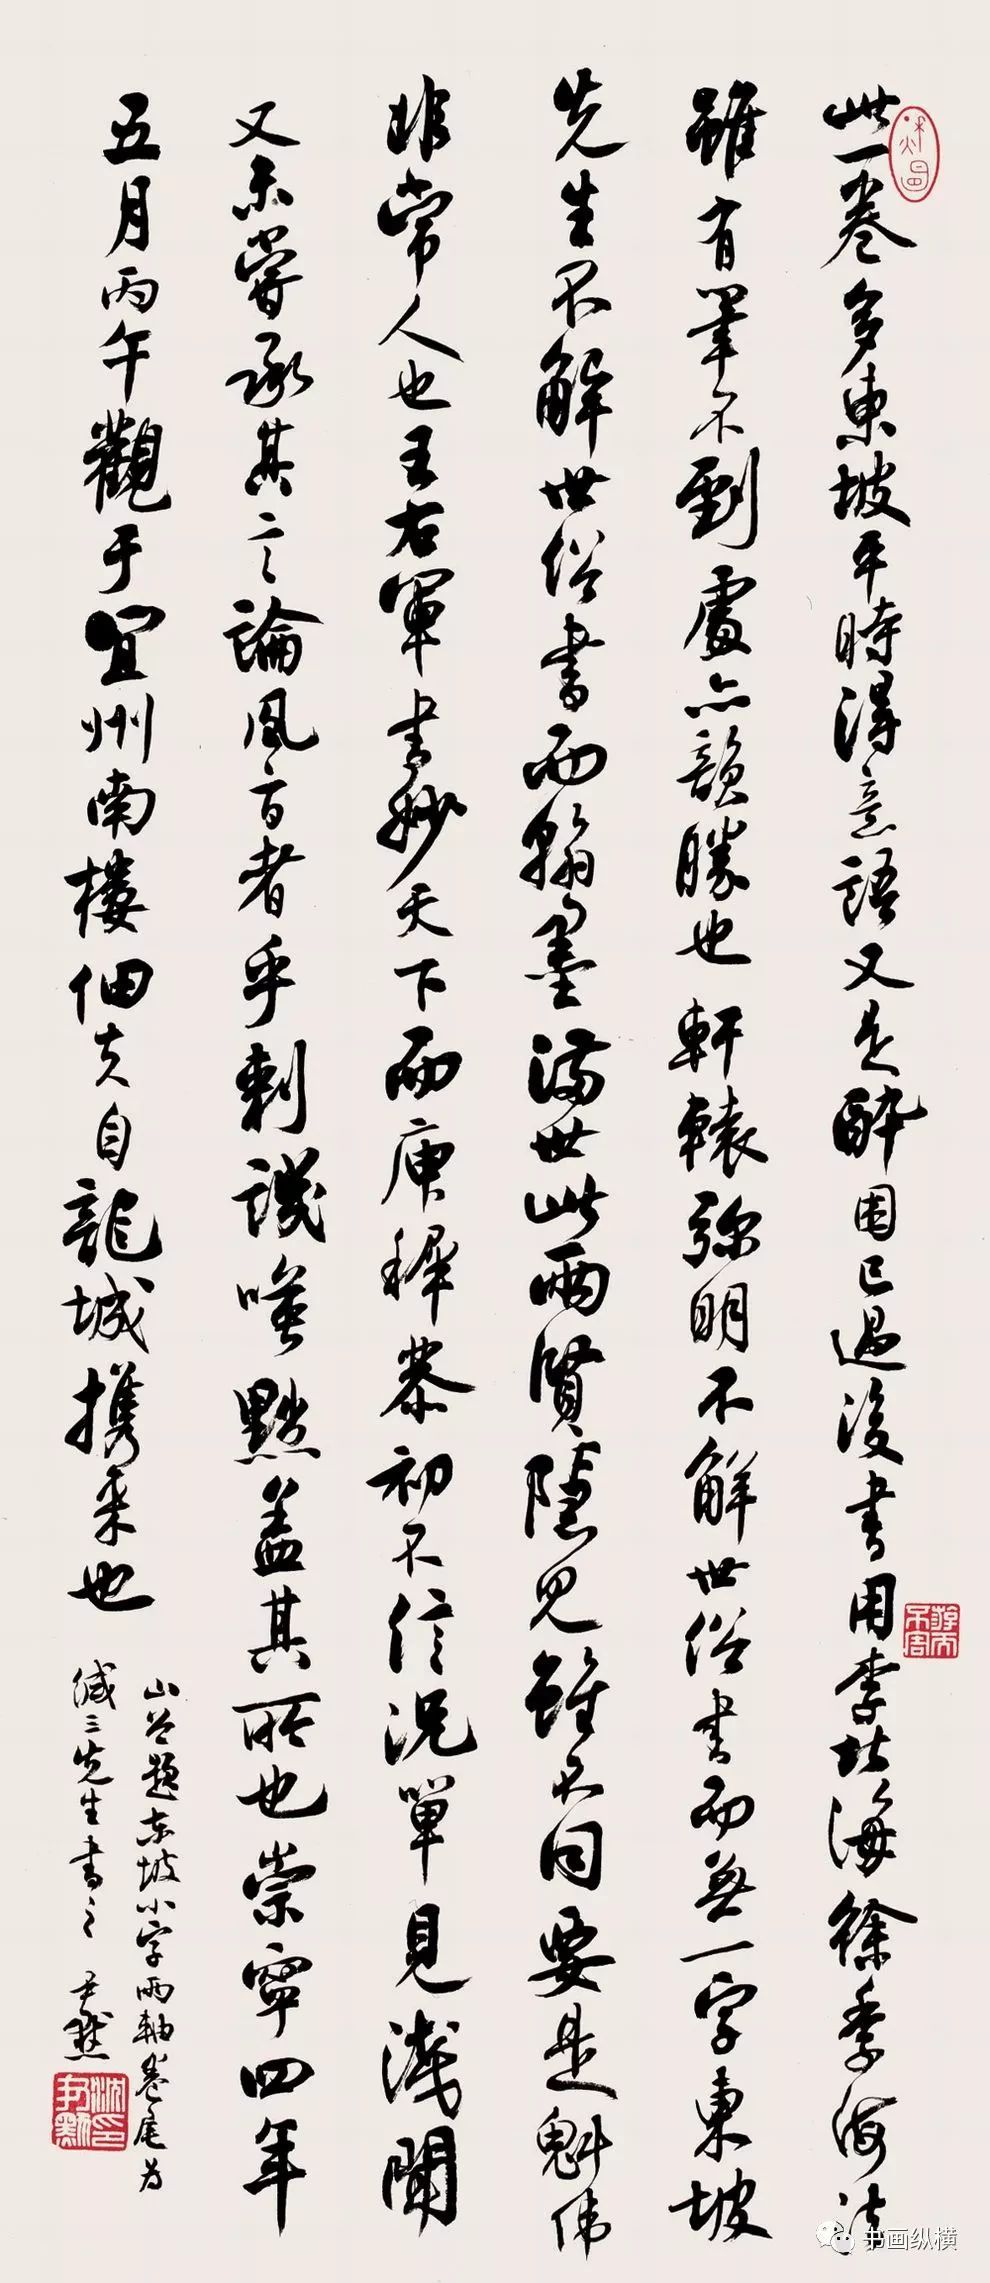 此一卷多東坡平時得意語又是醉困已過後書用李北海徐季海法
雖有筆不到處亦韻勝也軒轅弥明不解世俗書而無一字東坡
先生不解世俗書而翰墨滿世此兩賢隱見雖不同要是魁偉
非常人也王右軍書妙天下而庾穉恭初不信況單見淺聞
又未嘗承其言論風旨者乎刺譏嗤點蓋其所也崇寧四年
五月丙午觀于宜州南樓佃夫自龍城携来也
山谷題東坡小字兩軸卷尾為
緘三先生書之 尹默
沈印尹默
书画纵横